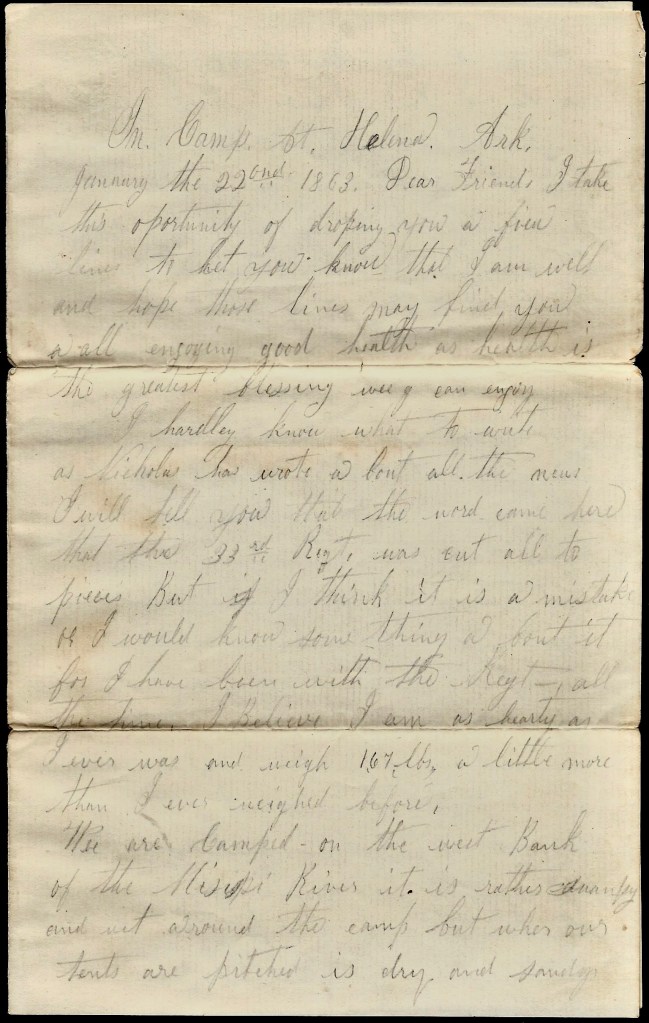 In. Camp. At. Helena. Ark.
January the 22ond. 1863. Dear Friends I take
this oportunity of droping you a few
lines to let you know that I am well
and hope those lines may find you
a all engoying good health as health is
the greatest blessing wee can enjoy
I hardley know what to write
as Nicholas has wrote a bout all the news
I will tell you that the word came here
that the 33rd Regt. was cut all to
pieces But if I think it is a mistake
or I would know some thing a bout it
for I have been with the Regt, all
the time. I Believe I am as hearty as
I ever was and weigh 167, lbs, a little more
than I ever weighed before,
Wee are Camped on the west Bank
of the Missipi River it. is rather swampy
and wet a round the camp but wher our
tents are pitched is dry and sandy